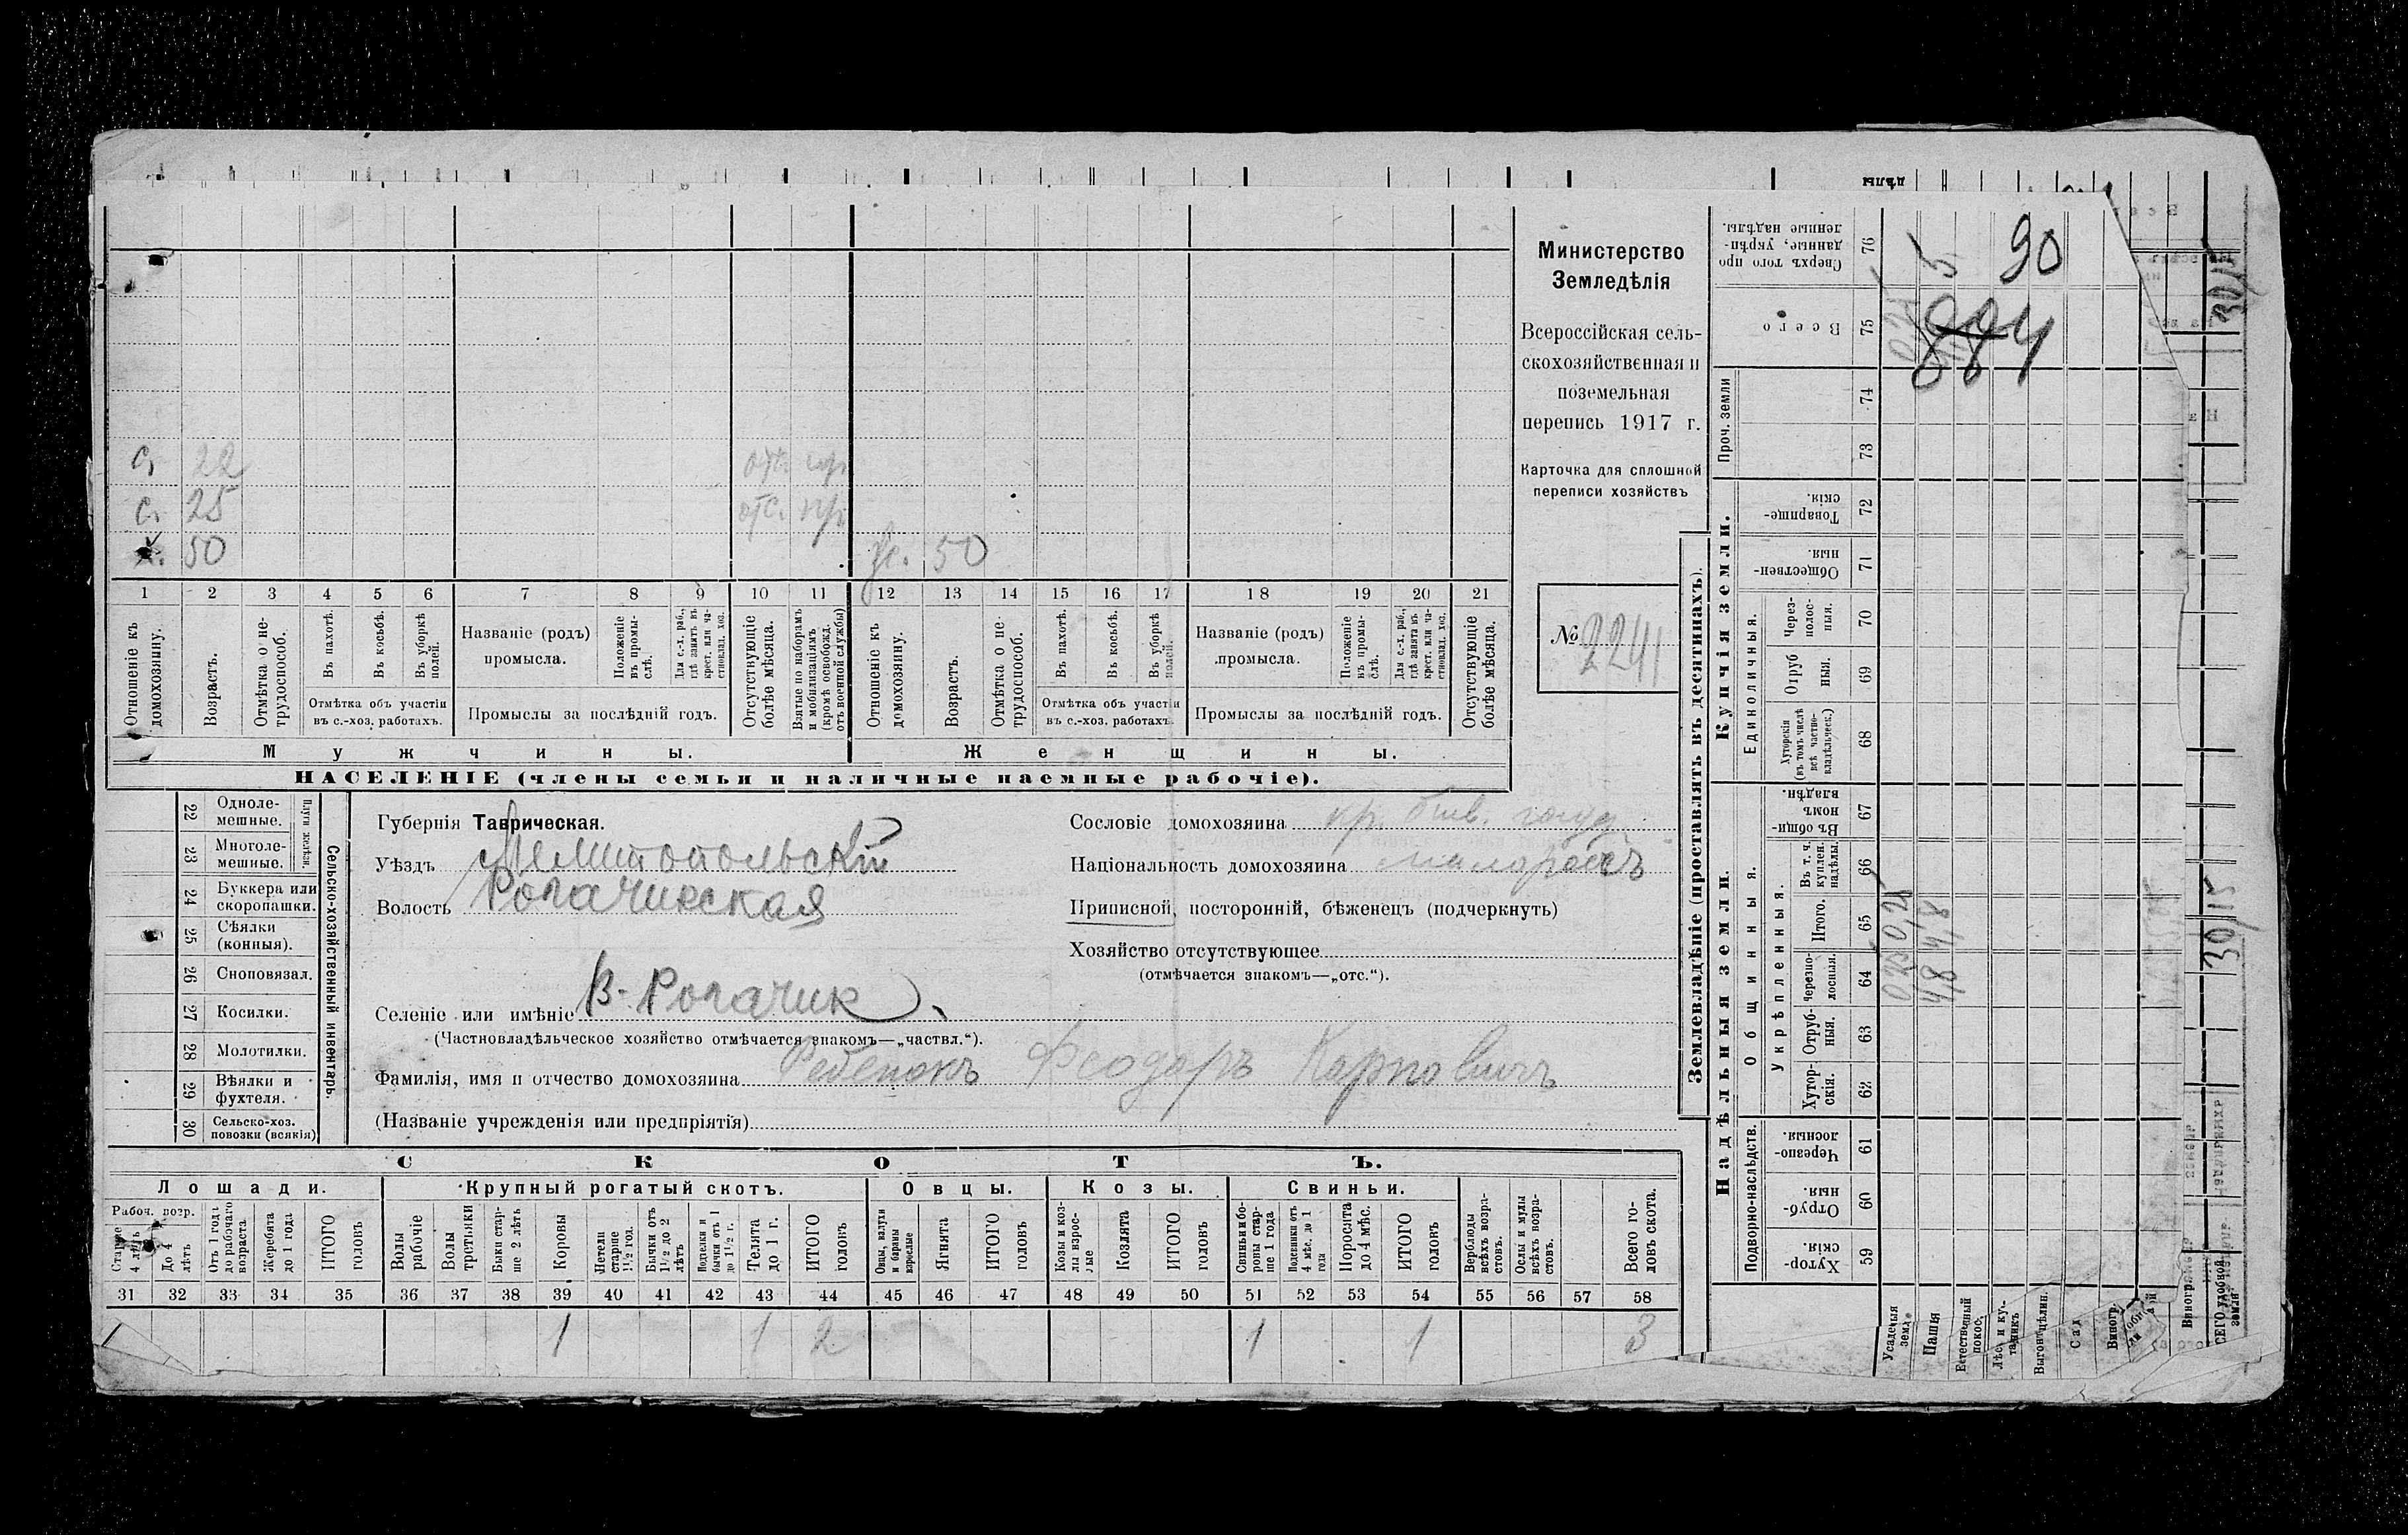 Министерство
Земледѣлія
Всероссійская сель-
скохозяйственная и
поземельная
перепись 1917 г.
Карточка для сплошной
переписи хозяйствъ
№ 2241
с. 22 отс. пр.
с. 25 отс. пр.
х. 50 ж. 50
1 2 3 4 5 6 7 8 9 10 11 12 13 14 15 16 17 18 19 20 21
Отношеніе къ домохозяину.
Возрастъ.
Отмѣтка о не-трудоспособ.
Въ пахотѣ.
Въ косьбѣ.
Въ уборкѣ полей.
Отмѣтка объ участіи
въ с.-хоз. работахъ.
Названіе (родъ)
промысла.
Положеніе въ промы-слѣ.
Для с.-х. раб., гдѣ занятъ въ крест. или ча-стновлад. хоз.
Промыслы за послѣдній годъ.
Отсутствующіе болѣе мѣсяца.
Взятые по наборамъ и мобилизаціямъ (кромѣ освобожд. отъ военной службы)
Отношеніе къ домохозяину.
Возрастъ.
Отмѣтка о не-трудоспособ.
Въ пахотѣ.
Въ косьбѣ.
Въ уборкѣ полей.
Отмѣтка объ участіи
въ с.-хоз. работахъ.
Названіе (родъ)
промысла.
Положеніе въ промы-слѣ.
Для с.-х. раб., гдѣ занята въ крест. или ча-стновлад. хоз.
Промыслы за послѣдній годъ.
Отсутствующіе болѣе мѣсяца.
Мужчины. Женщины.
НАСЕЛЕНІЕ (члены семьи и наличные наемные рабочіе).
Сельско-хозяйственный инвентарь.
Плуги желѣзн.
22 Одноле-мешные.
23 Многоле-мешные.
24 Буккера или скоропашки.
25 Сѣялки (конныя).
26 Сноповязал.
27 Косилки.
28 Молотилки.
29 Вѣялки и фухтеля.
30 Сельско-хоз. повозки (всякія)
Губернія Таврическая.
Уѣздъ Мелитопольскій
Волость Рогачикская
Селеніе или имѣніе В-Рогачик
(Частновладѣльческое хозяйство отмѣчается знакомъ—„частвл.“).
Фамилія, имя и отчество домохозяина Ребенокъ Феодоръ Карповичъ
(Названіе учрежденія или предпріятія)
Сословіе домохозяина кр. бывш. госуд.
Національность домохозяина малороссъ
Приписной, посторонній, бѣженецъ (подчеркнуть)
Хозяйство отсутствующее
(отмѣчается знакомъ—„отс.“).
СКОТЪ.
Лошади. Крупный рогатый скотъ. Овцы. Козы. Свиньи.
Рабоч. возр.
Старше 4 лѣтъ
До 4 лѣтъ
Отъ 1 года до рабочаго возраста
Жеребята до 1 года
ИТОГО головъ
Волы рабочіе
Волы третьяки
Быки стар-ше 2 лѣтъ
Коровы
Нетели старше 1½ год.
Бычки отъ 1½ до 2 лѣтъ
Подтелки и бычки отъ 1 до 1½ г.
Телята до 1 г.
ИТОГО головъ
Овцы, валухи и бараны взрослые
Ягнята
ИТОГО головъ
Козы и коз-лы взрос-лые
Козлята
ИТОГО головъ
Свиньи и бо-ровы стар-ше 1 года
Подсвинки отъ 4 мѣс. до 1 года
Поросята до 4 мѣс.
ИТОГО головъ
Верблюды всѣхъ возра-стовъ.
Ослы и мулы всѣхъ возра-стовъ.
Всего го-ловъ скота.
31 32 33 34 35 36 37 38 39 40 41 42 43 44 45 46 47 48 49 50 51 52 53 54 55 56 57 58
1 1 2 1 1 3
Землевладѣніе (проставлять въ десятинахъ).
Надѣльныя земли. Купчія земли.
Проч. земли
Подворно-наслѣдств.
Общинныя.
Укрѣпленныя.
Единоличныя.
Сверхъ того про данные, укрѣп-ленные надѣлы. 76
Всего 75
74
73
Товарище-скія. 72
Обществен-ныя. 71
Через-полос-ныя. 70
Отруб ныя. 69
Хуторскія (въ томъ числѣ всѣ частно-владѣльческ.) 68
Въ общи-номъ владѣн. 67
Въ т. ч. куплен. надѣлы. 66
Итого. 65
Черезпо-лосныя. 64
Отруб-ныя. 63
Хутор-скія. 62
Черезпо-лосныя. 61
Отруб-ныя. 60
Хутор-скія. 59
90
884
4,8 4,8
30/15
Усадебная земля
Пашня
Естественный покос.
Лѣс. и ку-старникъ
Выгонъ цѣлин.
Сад
Виногр.